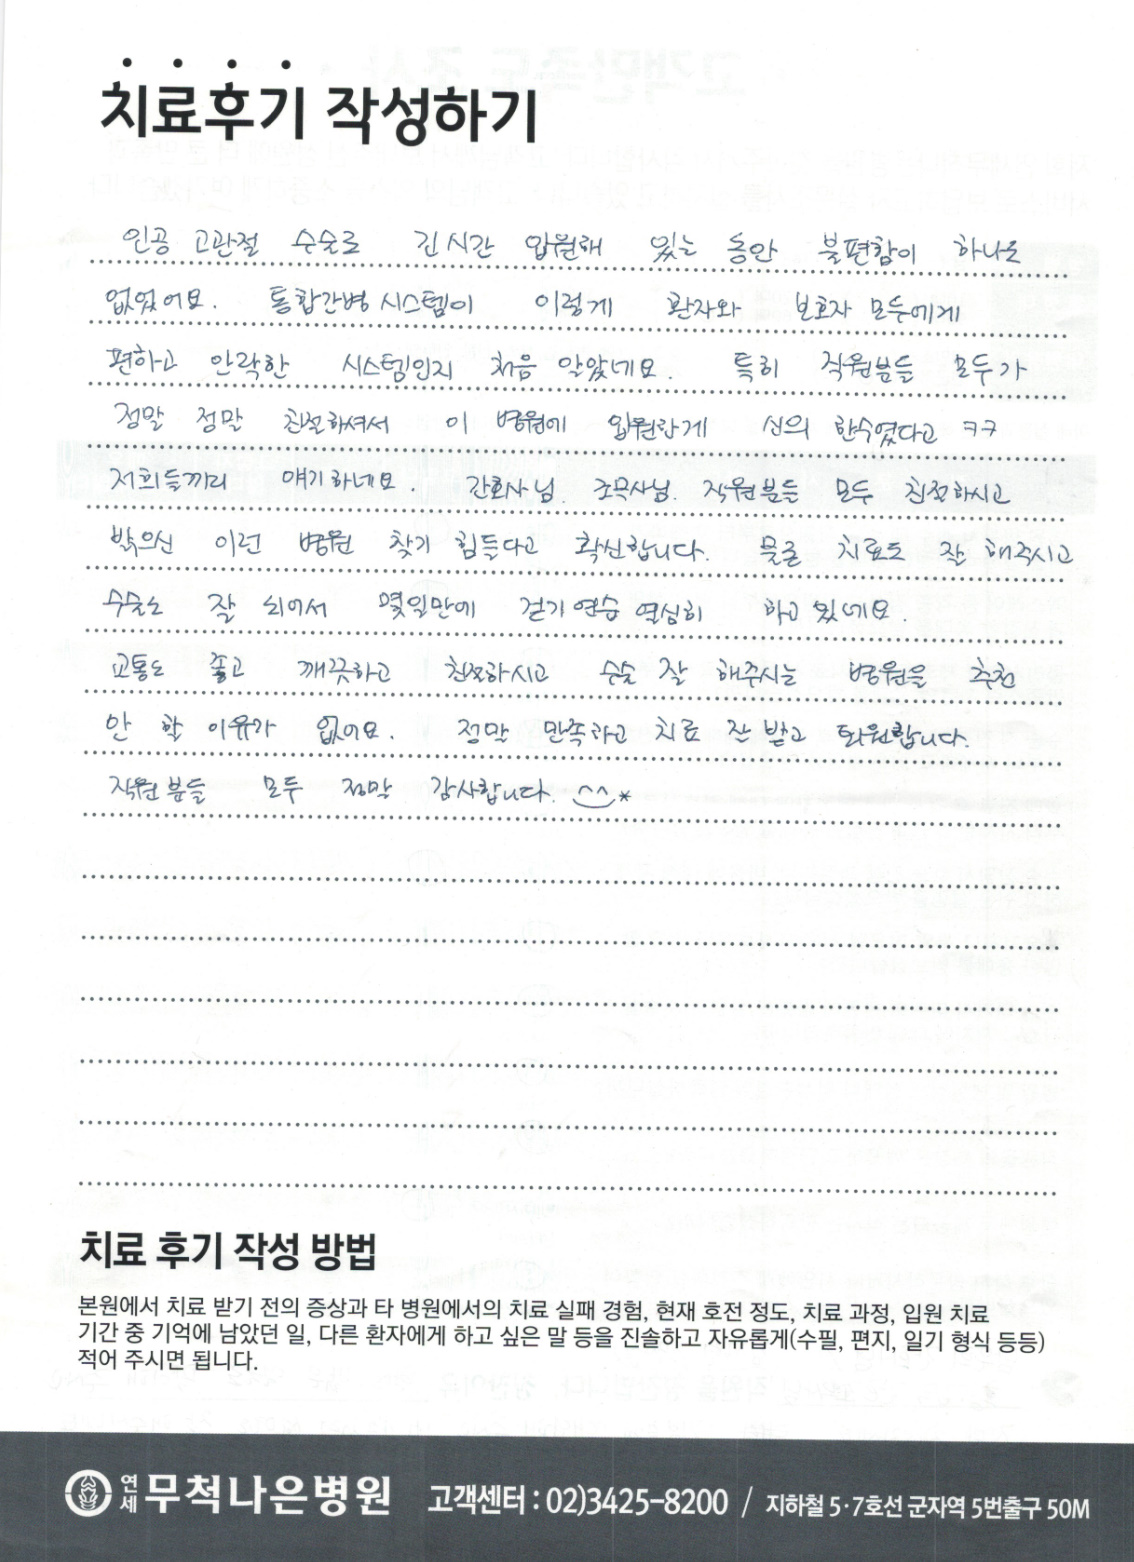 치료후기 작성하기
인공 고관절 수술로 긴시간 입원해 있는 동안 불편함이 하나도
없었어요. 통합간병 시스템이 이렇게 환자와 보호자 모두에게
편하고 안락한 시스템인지 처음 알았네요. 특히 직원분들 모두가
정말 정말 친절하셔서 이 병원에 입원한게 신의 한수였다고 ㅋㅋ
저희들끼리 얘기하네요. 간호사님. 조무사님. 직원분들 모두 친절하시고
밝으신 이런 병원 찾기 힘들다고 확신합니다. 물론 치료도 잘 해주시고
수술도 잘 되어서 몇일만에 걷기연습 열심히 하고 있네요
교통도 좋고 깨끗하고 친절하시고 수술 잘 해주시는 병원을 추천
안 할 이유가 없어요. 정말 만족하고 치료 잘 받고 퇴원합니다.
직원분들 모두 정말 감사합니다. ^^*
치료 후기 작성 방법
본원에서 치료 받기 전의 증상과 타 병원에서의 치료 실패 경험, 현재 호전 정도, 치료 과정, 입원 치료
기간 중 기억에 남았던 일, 다른 환자에게 하고 싶은 말 등을 진솔하고 자유롭게(수필, 편지, 일기 형식 등등)
적어 주시면 됩니다.
연세 무척나은병원 고객센터 : 02)3425-8200 / 지하철 5·7호선 군자역 5번출구 50M